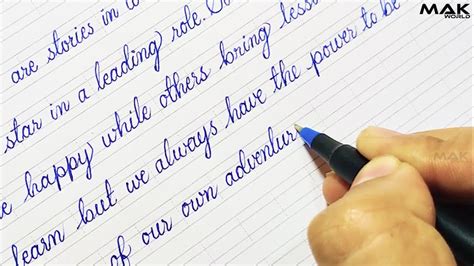 MAK
WORLD
are stories in
star in a leading role. So
e happy while others bring lesso
learn but we always have the power to be
of our own adventur
MAK
WORLD